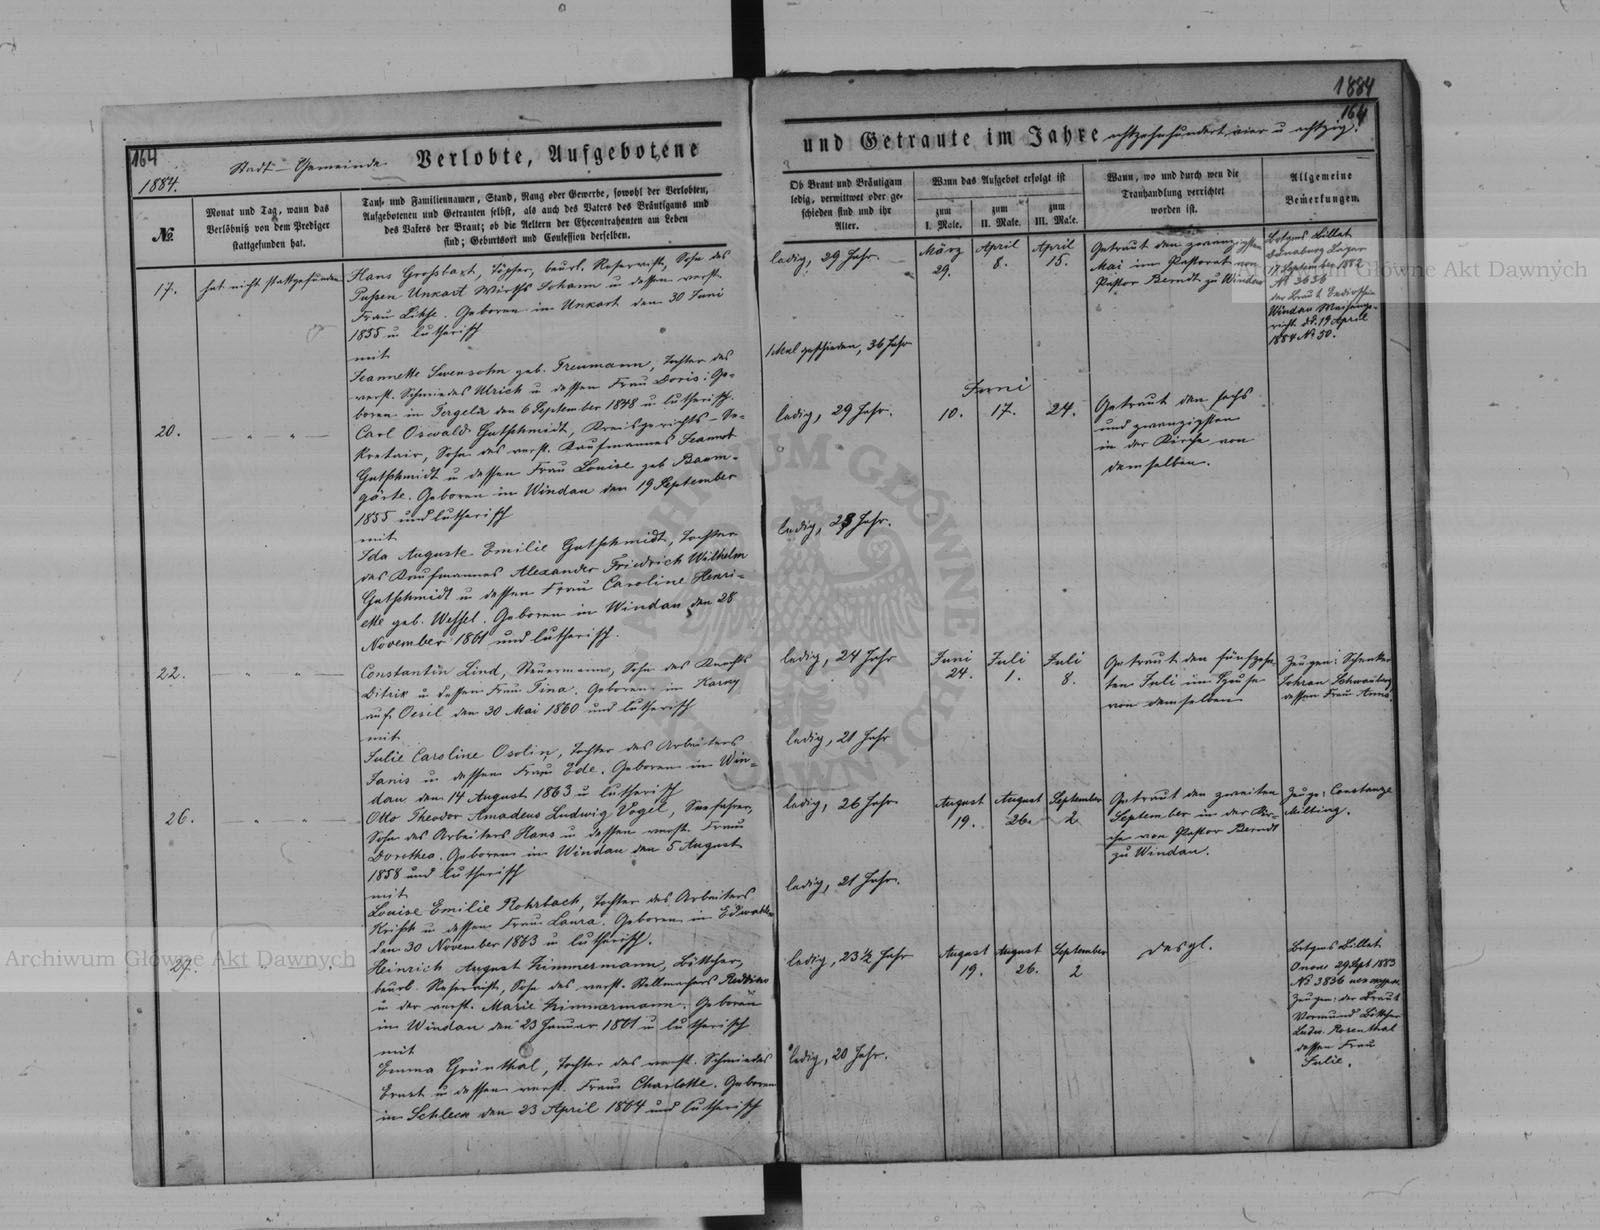 1884
164
164
1884.
Stadt-Gemeinde Verlobte, Aufgebotene
und Getraute im Jahre achtzehnhundert vier u achtzig.
№.
Monat und Tag, wann das
Verlöbniß von dem Prediger
stattgefunden hat.
Tauf- und Familiennamen, Stand, Rang oder Gewerbe, sowohl der Verlobten,
Aufgebotenen und Getrauten selbst, als auch des Vaters des Bräutigams und
des Vaters der Braut; ob die Aeltern der Ehecontrahenten am Leben
sind; Geburtsort und Confession derselben.
Ob Braut und Bräutigam
ledig, verwittwet oder ge-
schieden sind und ihr
Alter.
Wann das Aufgebot erfolgt ist
zum
I. Male.
zum
II. Male.
zum
III. Male.
Wann, wo und durch wen die
Trauhandlung verrichtet
worden ist.
Allgemeine
Bemerkungen.
17.
hat nicht stattgefunden
Hans Grossbart, Töpfer, beurl. Reservist, Sohn des
Unkart Wirths Johann u dessen verst.
Frau Lihse. Geboren in Unkart den 30 Juni
1855 u lutherisch
mit
Jeannette Swensohn geb. Freumann, Tochter des
verst. Schmiedes Ulrich u dessen Frau Doris. Ge-
boren in Tergeln den 6 September 1848 u lutherisch.
ledig, 29 Jahr.
1 Mal geschieden, 36 Jahr
März
29.
April
8.
April
15.
Getraut den zwanzigsten
Mai im Pastorat von
Pastor Berndt zu Windau
Billet
Dünaburg
17 September 1882
№ 3636
der Braut
Windau
d. 19 April
1884 № 50.
20.
— " —
Carl Oswald Gutschmidt, Kreisgerichts-Se-
kretair, Sohn des verst. Kaufmannes Jeannot
Gutschmidt u dessen Frau Louise geb Baum-
gärte. Geboren in Windau den 19 September
1855 und lutherisch
mit
Ida Auguste Emilie Gutschmidt, Tochter
des Kaufmannes Alexander Friedrich Wilhelm
Gutschmidt u dessen Frau Caroline Henri-
ette geb. Wessel. Geboren in Windau den 28
November 1861 und lutherisch.
ledig, 29 Jahr.
ledig, 23 Jahr.
Juni
10. 17. 24.
Getraut den sechs
und zwanzigsten
in der Kirche von
demselben.
22.
— " —
Constantin Lind, Steuermann, Sohn des Knechts
Ditrik u dessen Frau Tina. Geboren in Karny
auf Oesel den 30 Mai 1860 und lutherisch
mit
Julie Caroline Osolin, Tochter des Arbeiters
Janis u dessen Frau Ede. Geboren in Win-
dau den 14 August 1863 u lutherisch
ledig, 24 Jahr
ledig, 21 Jahr
Juni
24.
Juli
1.
Juli
8.
Getraut den fünfzehn-
ten Juli im Hause
von demselben
Zeugen: Schenker
Johann
dessen Frau Anna
26.
— " —
Otto Theodor Amadeus Ludwig Vogel, Seefahrer,
Sohn des Arbeiters Hans u dessen verst. Frau
Dorothea. Geboren in Windau den 5 August
1858 und lutherisch
mit
Louise Emilie Rohrbach, Tochter des Arbeiters
Krisch u dessen Frau Laura. Geboren in Edwahlen
den 30 November 1863 u lutherisch.
ledig, 26 Jahr
ledig, 21 Jahr.
August
19.
August
26.
September
2
Getraut den zweiten
September in der Kir-
che von Pastor Berndt
zu Windau.
Zeuge: Constanze
Milting.
27.
Heinrich August Zimmermann, Böttcher,
beurl. Reservist, Sohn des verst. Stellmachers
u der verst. Marie Zimmermann. Geboren
in Windau den 23 Januar 1861 u lutherisch
mit
Emma Grünthal, Tochter des verst. Schmiedes
Ernst u dessen verst. Frau Charlotte. Geboren
in Schleck den 23 April 1864 und lutherisch
ledig, 23 ½ Jahr
ledig, 20 Jahr.
August
19.
August
26.
September
2
desgl.
Billet
29 Spt 1883
№ 3836
Zeugen: der Braut
Vormund Böttcher
Ludw. Rosenthal
dessen Frau
Julie.
Archiwum Główne Akt Dawnych
Archiwum Główne Akt Dawnych
ARCHIWUM GŁÓWNE AKT DAWNYCH